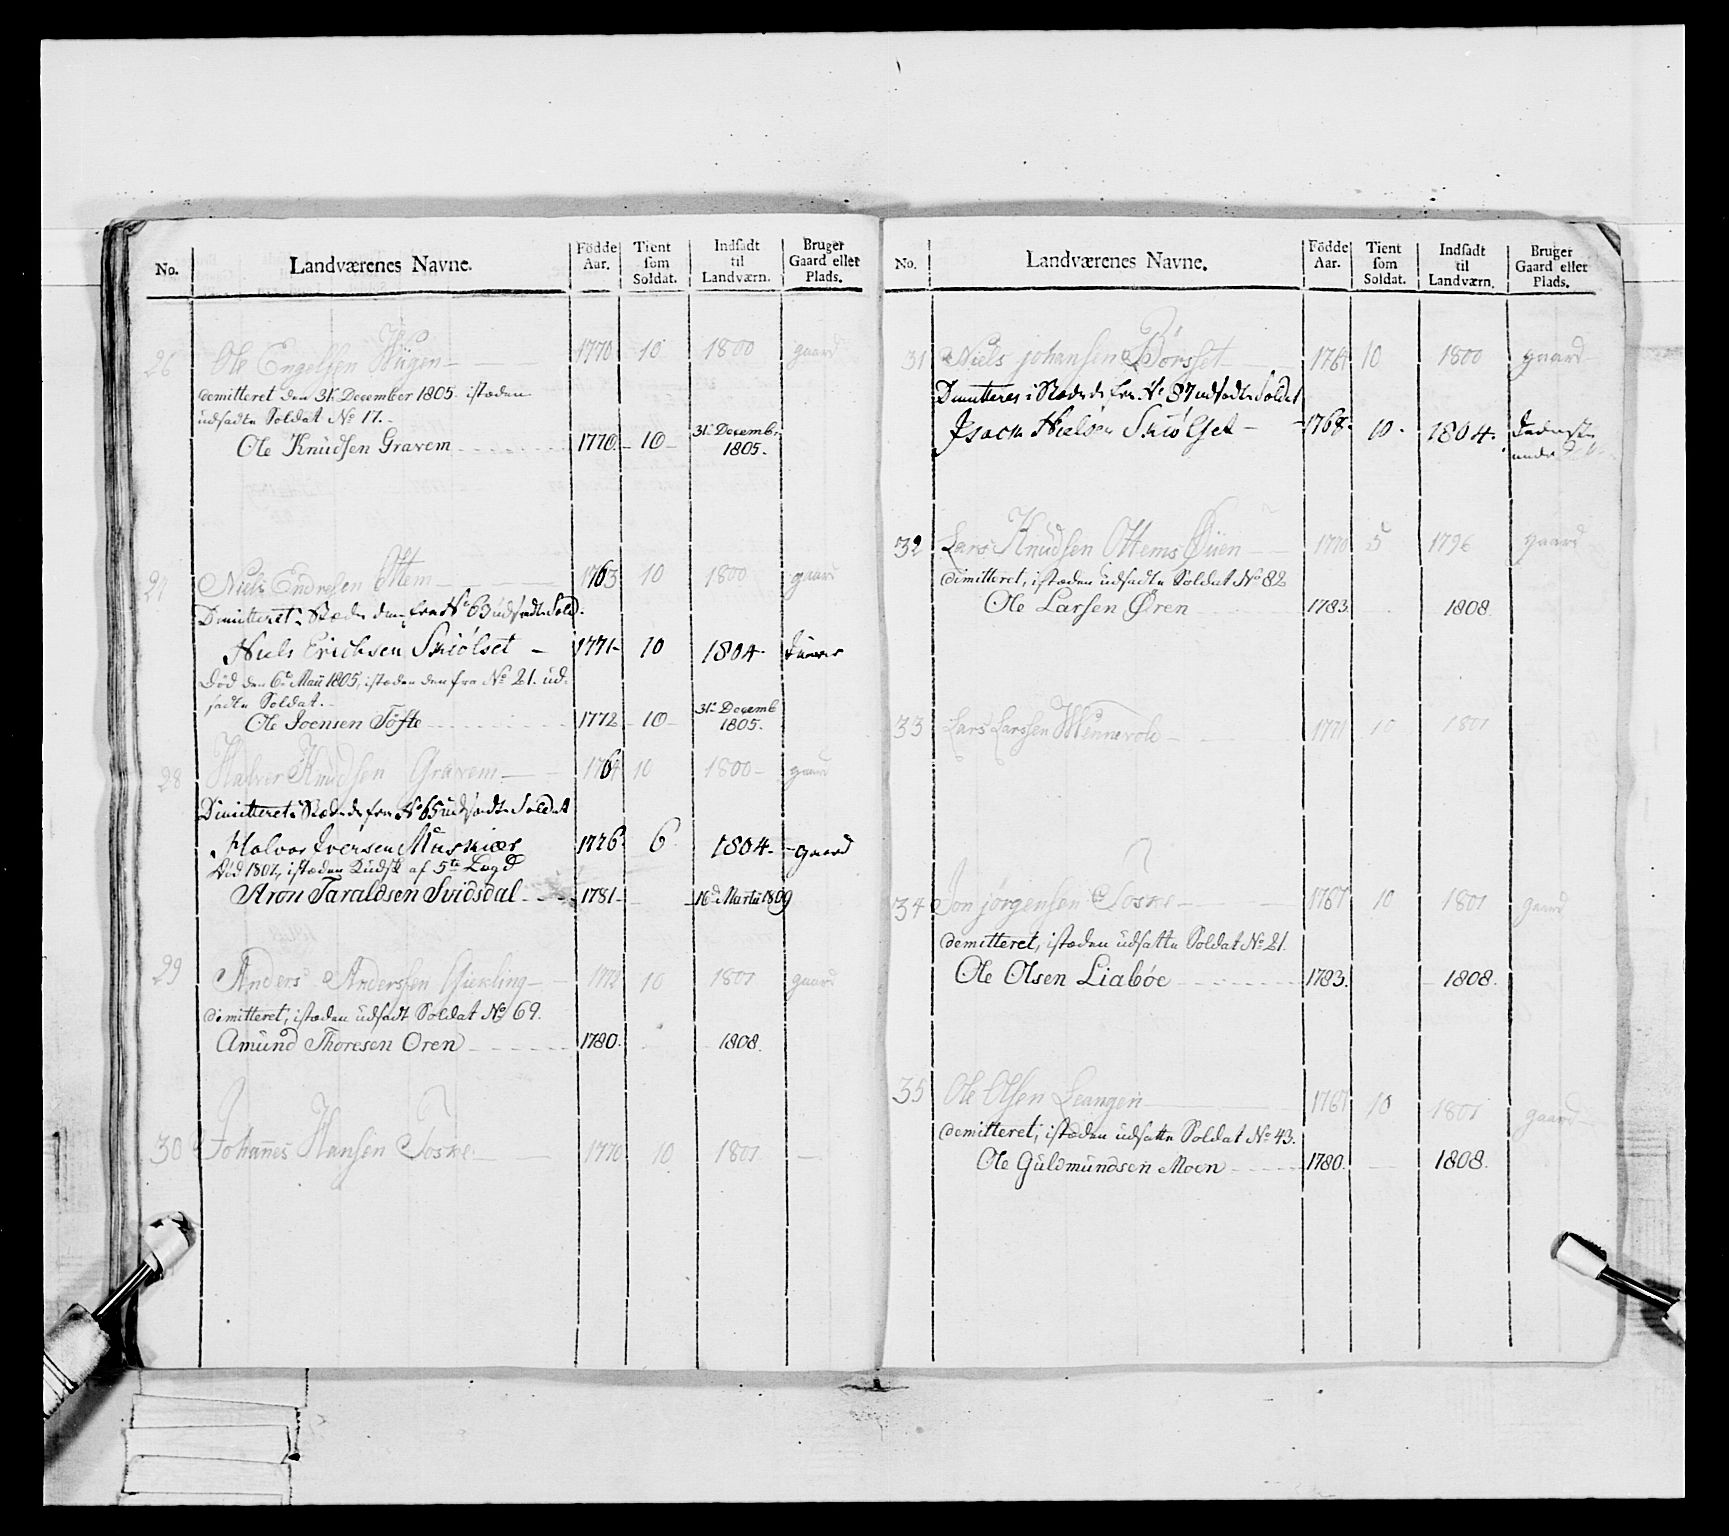 No. Landværenes Navne. Födde Aar. Tient som Soldat. Indsadt til Landværn. Bruger Gaard eller Plads.
26 Ole Engelsen Hügen 1770 10 1800 gaard
demitteret den 31. December 1805. isteden
udsadte Soldat No 17.
Ole Knudsen Gravem 1770. 10 31. Decemb. 1805.
27 Niels Endresen Ottem 1763 10 1800 gaard
Dimitteret i Stæden den fra No 63 udsadte Sold.
Niels Erichsen Skiølset 1771 10 1804
Död den 6. Maii 1805, isteden den fra No 21. ud-
sadte Soldat.
Ole Joensen Töfte 1772 10 31. Decemb 1805.
28 Halvor Knudsen Gravem 1764 10 1800 gaard
Dimitteret i Stæden de fra No 65 udsadte Soldat
Halvor Iversen Muskiær 1776 6 1804 gaard
död 1807, isteden Rudsk af 5te Lægd
Aron Taraldsen Svidsdal 1781 16d Martii 1809
29 Anders Anderssen Giekling 1772 10 1801 gaard
dimitteret, isteden udsadt Soldat No 69.
Amund Thoresen Oren 1780. 1808.
30 Johannes Hansen Toske 1770 10 1801
No. Landværenes Navne. Födde Aar. Tient som Soldat. Indsadt til Landværn. Bruger Gaard eller Plads.
31 Niels johansen Børsset 1764 10 1800 gaard
Dimitteres i Stæden de fra No 87 udsadte Soldat
Isack Nielsen Skiølset 1768 10 1804.
32 Lars Knudsen Ottems Øüen 1770 5 1796 gaard
dimitteret, isteden udsadte Soldat No 82
Ole Larsen Øren 1783. 1808.
33 Lars Larssen Wennevold 1771 10 1801
34 Jon jørgensen Toske 1767 10 1801 gaard
demitteret, isteden udsatte Soldat No 21.
Ole Olsen Liabøe 1783. 1808.
35 Ole Olsen Leangen 1767 10 1801 gaard
demitteret, isteden udsatte Soldat No 43.
Ole Guldmundsen Moen 1780. 1808.